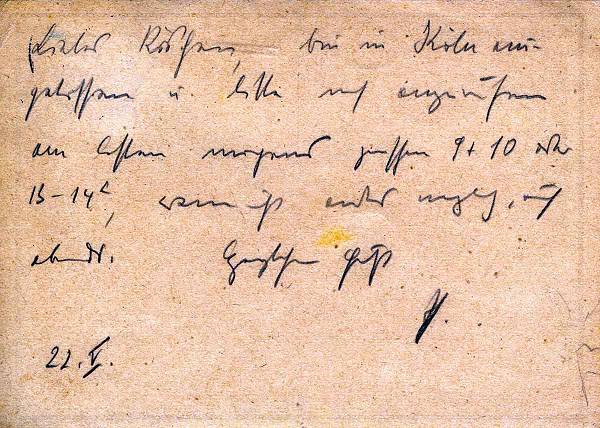 Liebes Röschen, bin in Köln ein-
getroffen u. bitte mich anzurufen
am besten morgens zwischen 9 + 10 oder
13-14h, wenn es nicht möglich, auch
abends. Herzlichen Gruß
22. V.